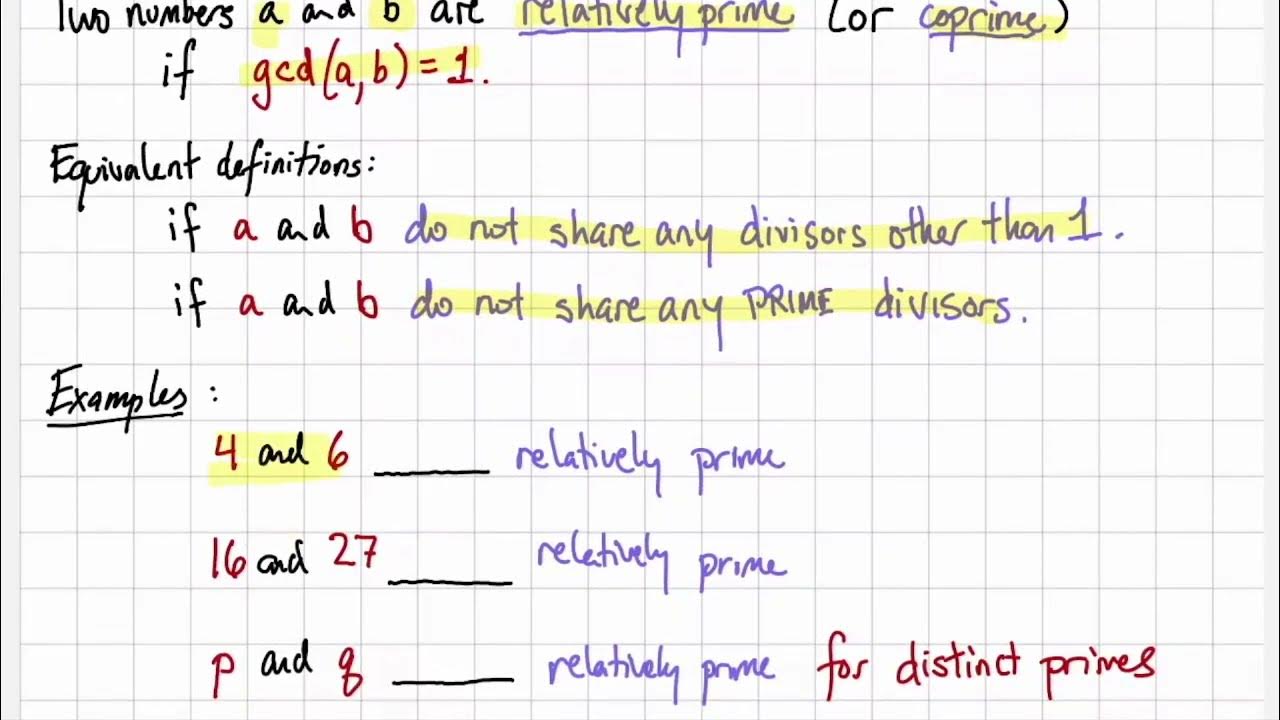 Two numbers a and b are relatively prime (or coprime)
if gcd(a,b) = 1.
Equivalent definitions:
if a and b do not share any divisors other than 1.
if a and b do not share any PRIME divisors.
Examples :
4 and 6 ______ relatively prime
16 and 27 ______ relatively prime
p and q ______ relatively prime for distinct primes